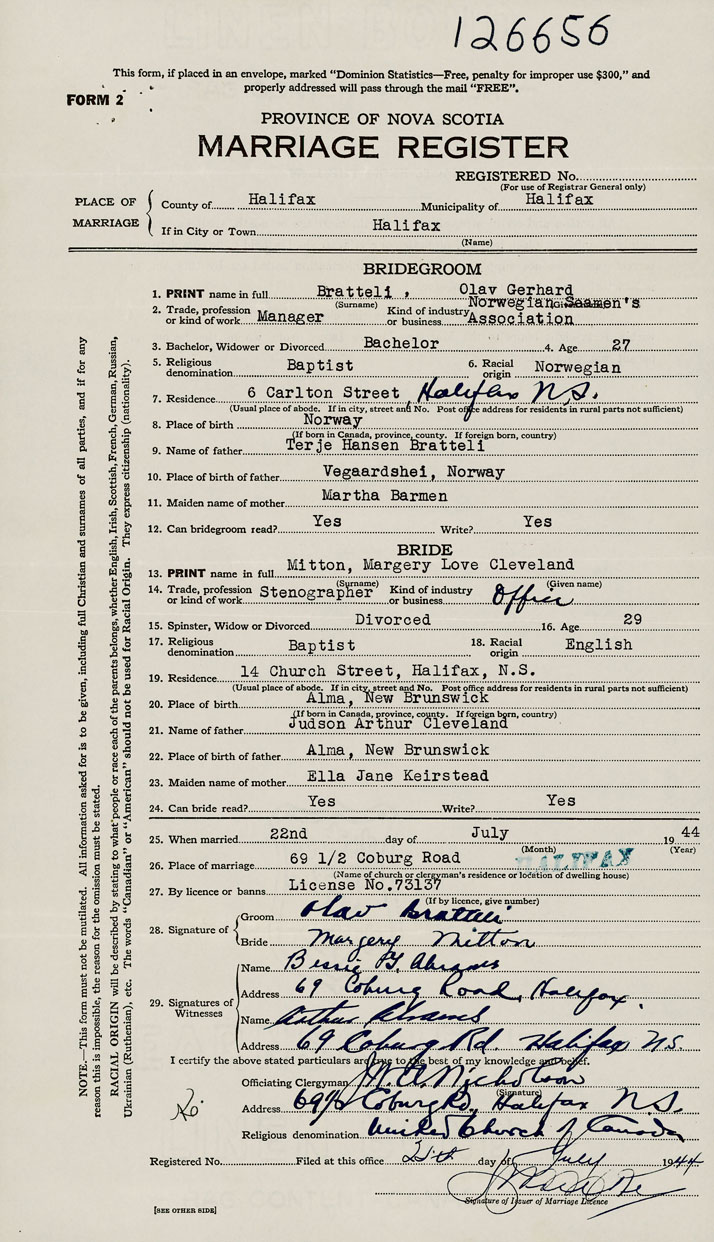 126656
This form, if placed in an envelope, marked "Dominion Statistics—Free, penalty for improper use $300," and
properly addressed will pass through the mail "FREE".
FORM 2
PROVINCE OF NOVA SCOTIA
MARRIAGE REGISTER
REGISTERED No.
(For use of Registrar General only)
PLACE OF MARRIAGE
County of Halifax Municipality of Halifax
If in City or Town Halifax
(Name)
BRIDEGROOM
1. PRINT name in full Bratteli , Olav Gerhard
(Surname) (Given name)
2. Trade, profession or kind of work Manager Kind of industry or business Norwegian Seamen's Association
3. Bachelor, Widower or Divorced Bachelor 4. Age 27
5. Religious denomination Baptist 6. Racial origin Norwegian
7. Residence 6 Carlton Street, Halifax N.S.
(Usual place of abode. If in city, street and No. Post office address for residents in rural parts not sufficient)
8. Place of birth Norway
(If born in Canada, province, county. If foreign born, country)
9. Name of father Terje Hansen Bratteli
10. Place of birth of father Vegaardshei, Norway
11. Maiden name of mother Martha Barmen
12. Can bridegroom read? Yes Write? Yes
BRIDE
13. PRINT name in full Mitton, Margery Love Cleveland
(Surname) (Given name)
14. Trade, profession or kind of work Stenographer Kind of industry or business Office
15. Spinster, Widow or Divorced Divorced 16. Age 29
17. Religious denomination Baptist 18. Racial origin English
19. Residence 14 Church Street, Halifax, N.S.
(Usual place of abode. If in city, street and No. Post office address for residents in rural parts not sufficient)
20. Place of birth Alma, New Brunswick
(If born in Canada, province, county. If foreign born, country)
21. Name of father Judson Arthur Cleveland
22. Place of birth of father Alma, New Brunswick
23. Maiden name of mother Ella Jane Keirstead
24. Can bride read? Yes Write? Yes
25. When married 22nd day of July 1944
(Month) (Year)
26. Place of marriage 69 1/2 Coburg Road HALIFAX
(Name of church or clergyman's residence or location of dwelling house)
27. By licence or banns License No.73137
(If by licence, give number)
28. Signature of
Groom Olav Bratteli
Bride Margery Mitton
29. Signatures of Witnesses
Name Bessie G. Abrams
Address 69 Coburg Road, Halifax.
Name Arthur Abrams
Address 69 Coburg Rd. Halifax N.S.
I certify the above stated particulars are true to the best of my knowledge and belief.
Officiating Clergyman Nicholson
(Signature)
Address 69½ Coburg Rd, Halifax N.S.
Religious denomination United Church of Canada
Registered No. Filed at this office day of July 1944
Signature of Issuer of Marriage Licence
[SEE OTHER SIDE]
NOTE.—This form must not be mutilated. All information asked for is to be given, including full Christian and surnames of all parties, and if for any
reason this is impossible, the reason for the omission must be stated.
RACIAL ORIGIN will be described by stating to what people or race each of the parents belongs, whether English, Irish, Scottish, French, German, Russian,
Ukrainian (Ruthenian), etc. The words "Canadian" or "American" should not be used for Racial Origin. They express citizenship (nationality).